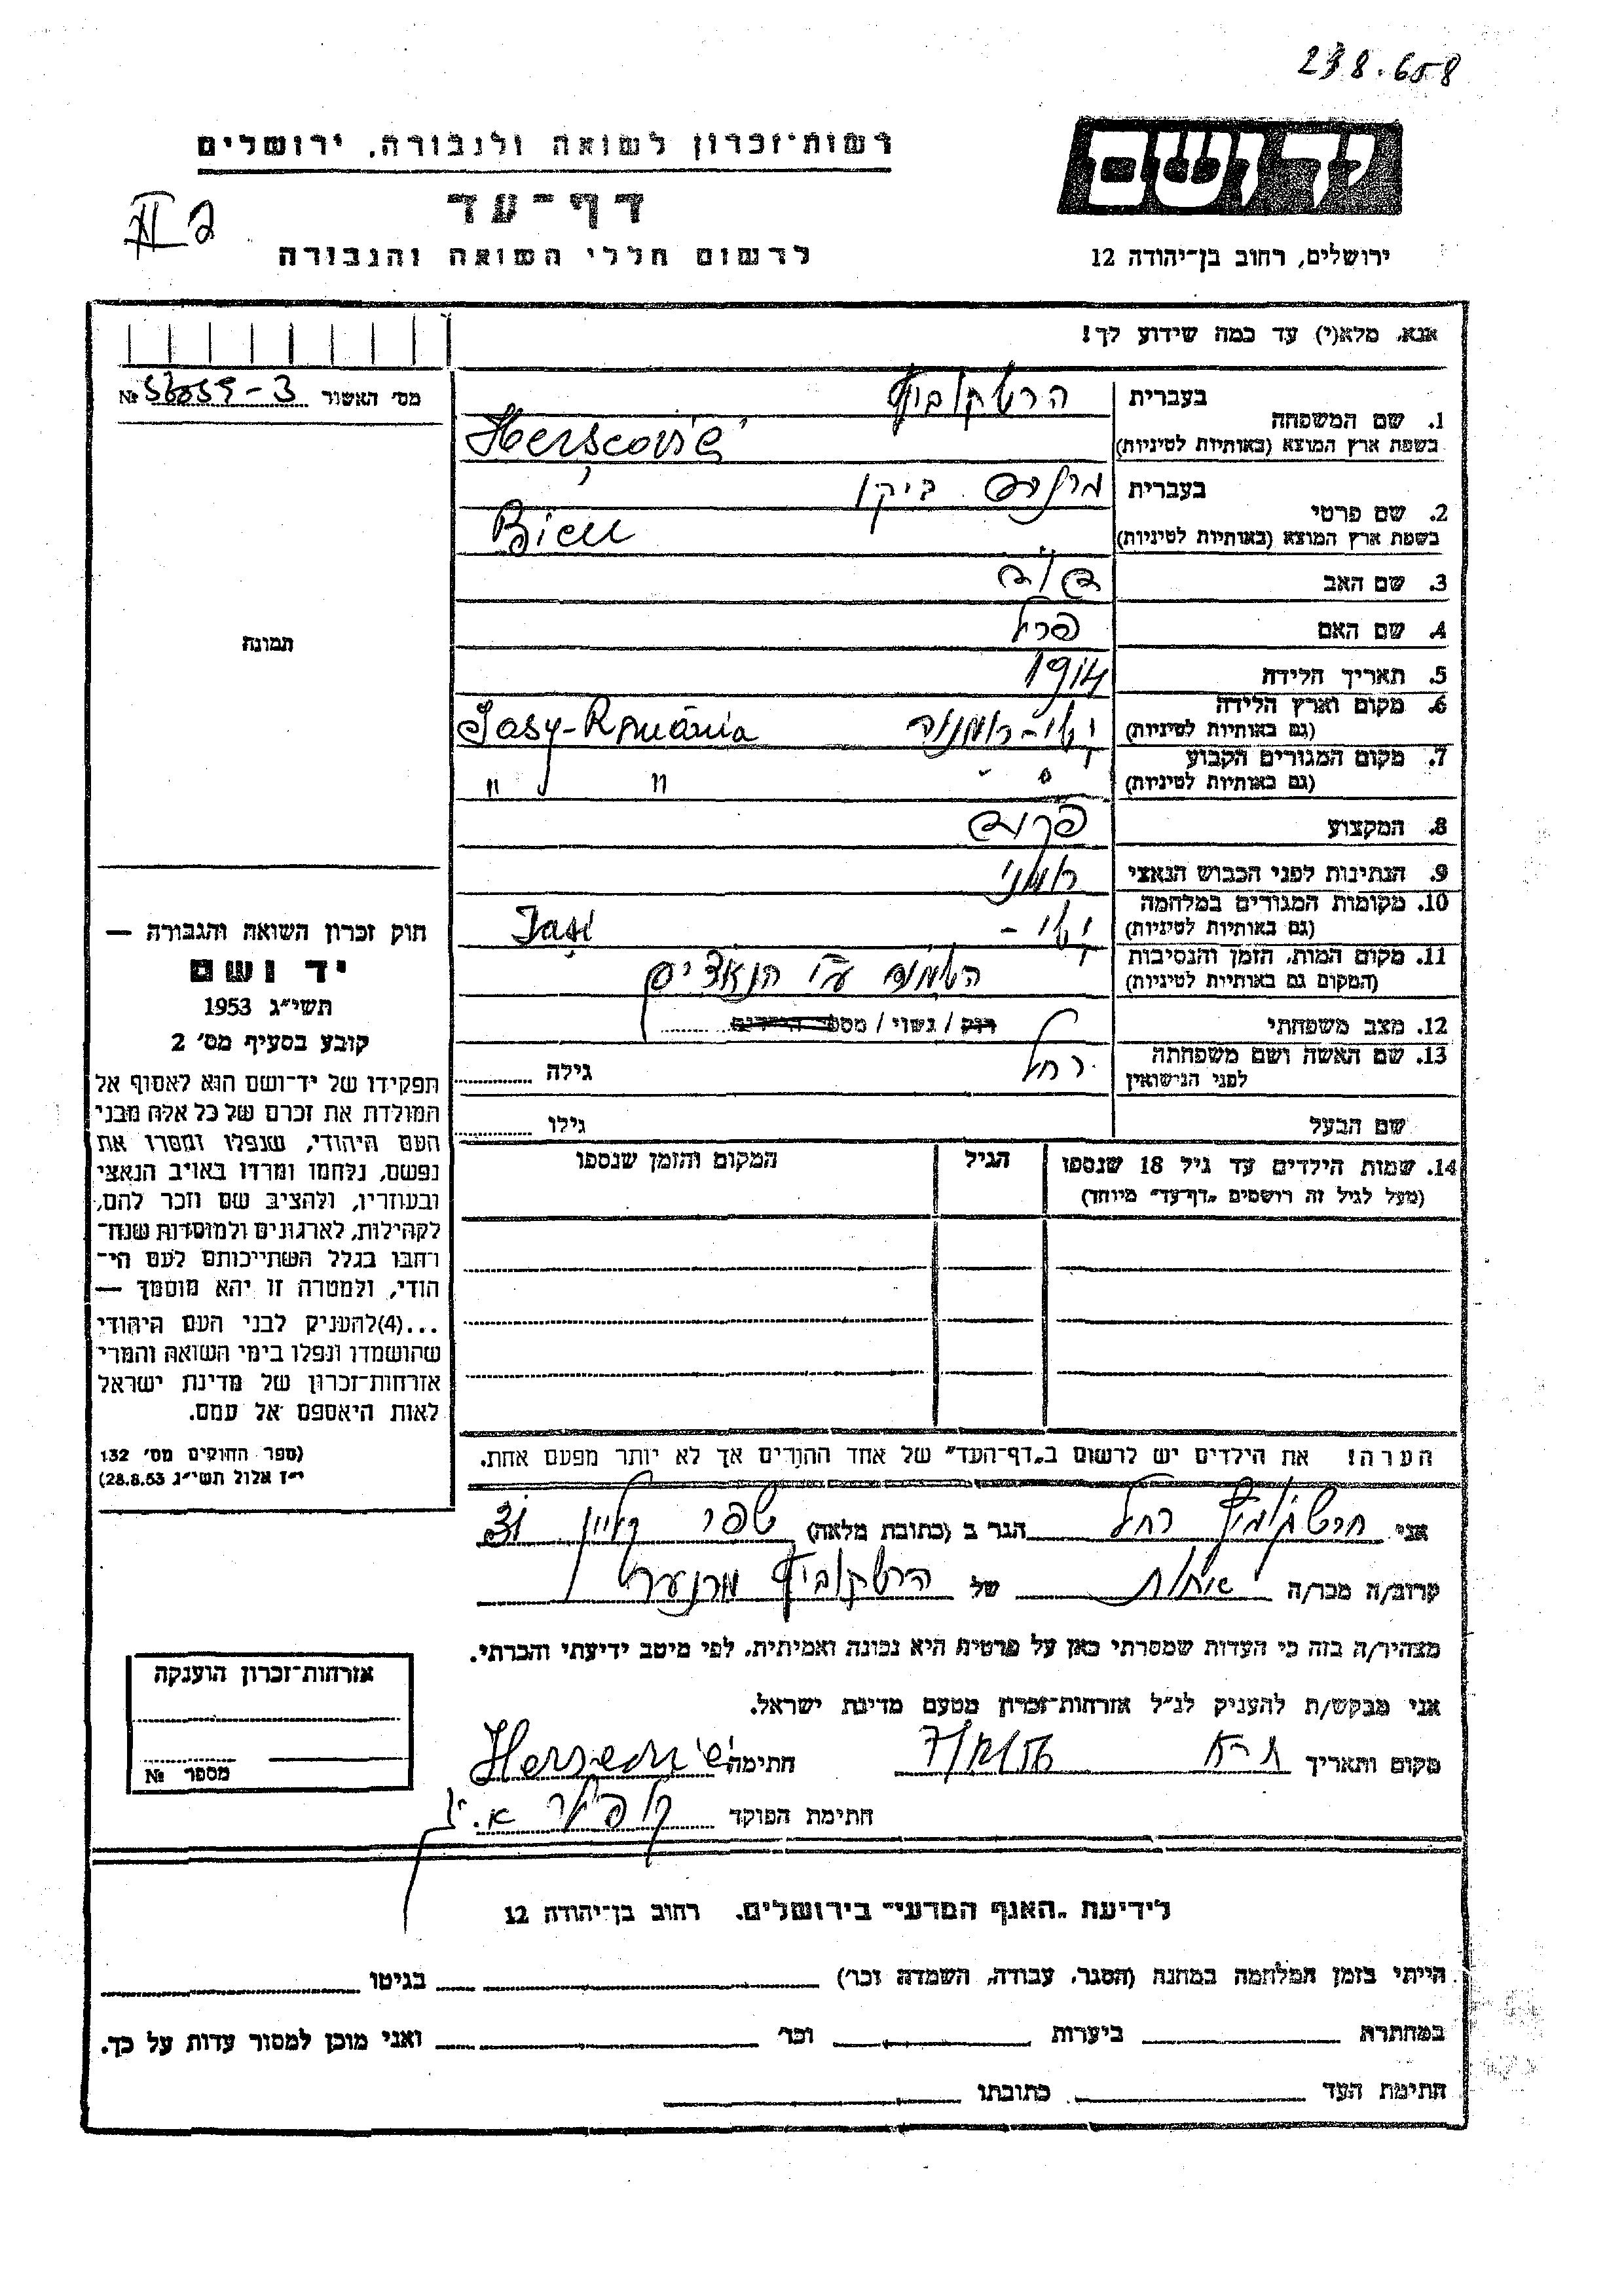 238.658
רשות־זכרון לשואה ולגבורה, ירושלים
יד ושם
דף־עד
לרשום חללי השואה והגבורה
ירושלים, רחוב בן־יהודה 12
אנא, מלא(י) עד כמה שידוע לך!
מס׳ האשור №
1. שם המשפחה בעברית הרשקוביץ
בשפת ארץ המוצא (באותיות לטיניות) Herșcovici
2. שם פרטי בעברית ביקו
בשפת ארץ המוצא (באותיות לטיניות) Bicu
3. שם האב
4. שם האם פרל
5. תאריך הלידה 1914
6. מקום וארץ הלידה (גם באותיות לטיניות) Jasy-România
7. מקום המגורים הקבוע (גם באותיות לטיניות) " "
8. המקצוע
9. הנתינות לפני הכבוש הנאצי רומני
10. מקומות המגורים במלחמה (גם באותיות לטיניות) Iași
11. מקום המות, הזמן והנסיבות (המקום גם באותיות לטיניות) הושמד ע״י הנאצים
12. מצב משפחתי רוק / נשוי / מספר הילדים
13. שם האשה ושם משפחתה לפני הנישואין רחל גילה
שם הבעל גילו
14. שמות הילדים עד גיל 18 שנספו הגיל המקום והזמן שנספו
(מעל לגיל זה רושמים „דף־עד״ מיוחד)
הערה! את הילדים יש לרשום ב„דף־העד״ של אחד ההורים אך לא יותר מפעם אחת.
תמונה
חוק זכרון השואה והגבורה —
יד ושם
תשי״ג 1953
קובע בסעיף מס׳ 2
תפקידו של יד־ושם הוא לאסוף אל
המולדת את זכרם של כל אלה מבני
העם היהודי, שנפלו ומסרו את
נפשם, נלחמו ומרדו באויב הנאצי
ובעוזריו, ולהציב שם וזכר להם,
לקהילות, לארגונים ולמוסדות שנח־
רחבו בגלל השתייכותם לעם הי־
הודי, ולמטרה זו יהא מוסמך —
...(4)להעניק לבני העם היהודי
שהושמדו ונפלו בימי השואה והמרי
אזרחות־זכרון של מדינת ישראל
לאות היאספם אל עמם.
(ספר החוקים מס׳ 132
י״ז אלול תשי״ג 28.8.53)
אני הרשקוביץ רחל הגר ב (כתובת מלאה)
קרוב/ה מכר/ה של הרשקוביץ
מצהיר/ה בזה כי העדות שמסרתי כאן על פרטיה היא נכונה ואמיתית, לפי מיטב ידיעתי והכרתי.
אני מבקש/ת להעניק לנ״ל אזרחות־זכרון מטעם מדינת ישראל.
מקום ותאריך חתימה
חתימת הפוקד
אזרחות־זכרון הוענקה
מספר №
לידיעת „האגף המדעי״ בירושלים, רחוב בן־יהודה 12
הייתי בזמן המלחמה במחנה (הסגר, עבודה, השמדה וכר׳) בגיטו
במחתרת ביערות וכר׳ ואני מוכן למסור עדות על כך.
חתימת העד כתובתו